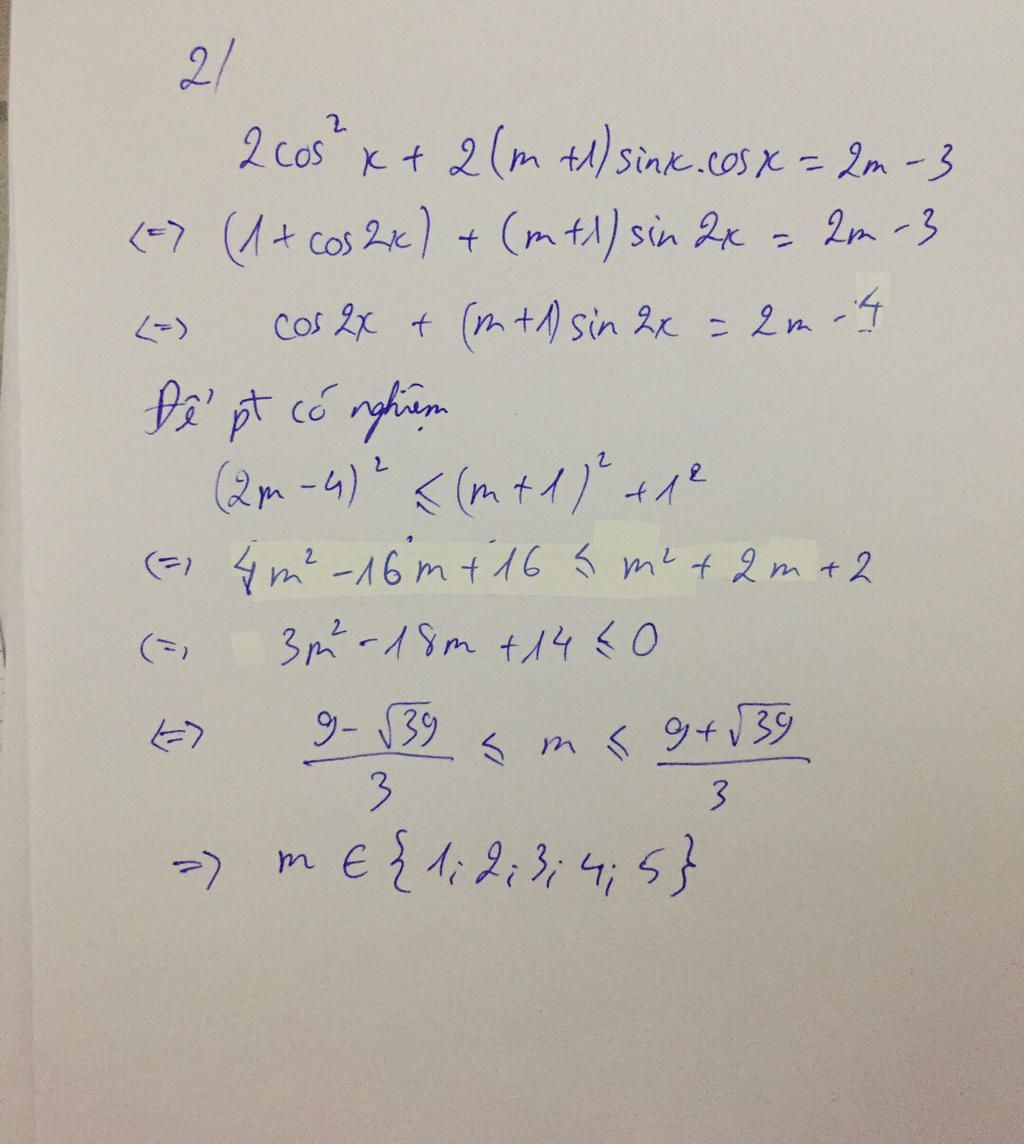 2/
2cos² x + 2(m+1)sinx.cosx = 2m-3
<=> (1+cos2x) + (m+1)sin 2x = 2m-3
<=> cos 2x + (m+1)sin 2x = 2m-4
Để pt có nghiệm
(2m-4)² ≤ (m+1)² + 1²
<=> 4m² - 16m + 16 ≤ m² + 2m + 2
<=> 3m² - 18m + 14 ≤ 0
<=> (9-√39)/3 ≤ m ≤ (9+√39)/3
=> m ∈ {1; 2; 3; 4; 5}